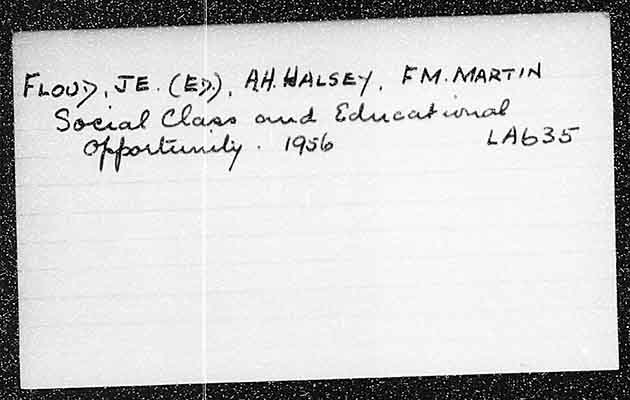 FLOUD, JE. (ED), A.H. HALSEY, F M. MARTIN
Social Class and Educational
Opportunity. 1956 LA635